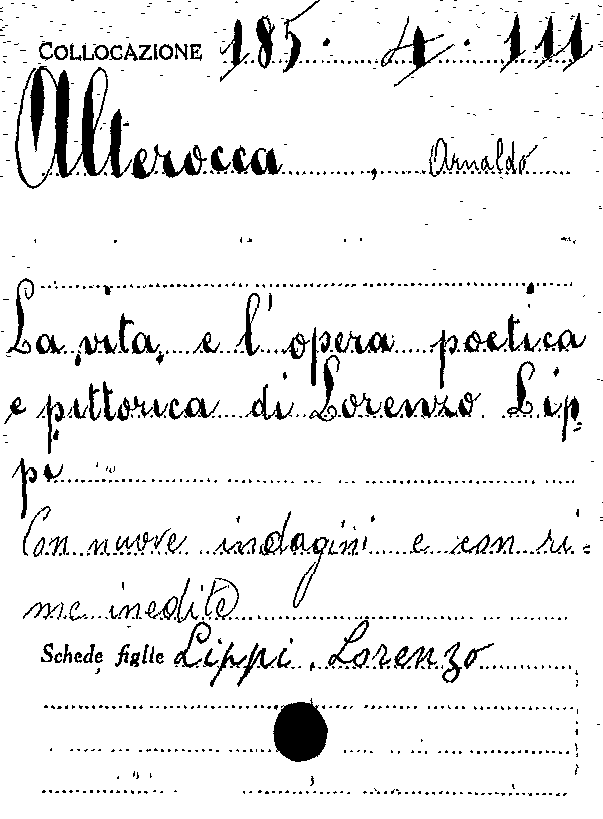 COLLOCAZIONE 185. 4. 111
Alterocca, Arnaldo
La vita e l'opera poetica
e pittorica di Lorenzo Lip=
pi
Con nuove indagini e con ri=
me inedite
Schede figlie Lippi, Lorenzo